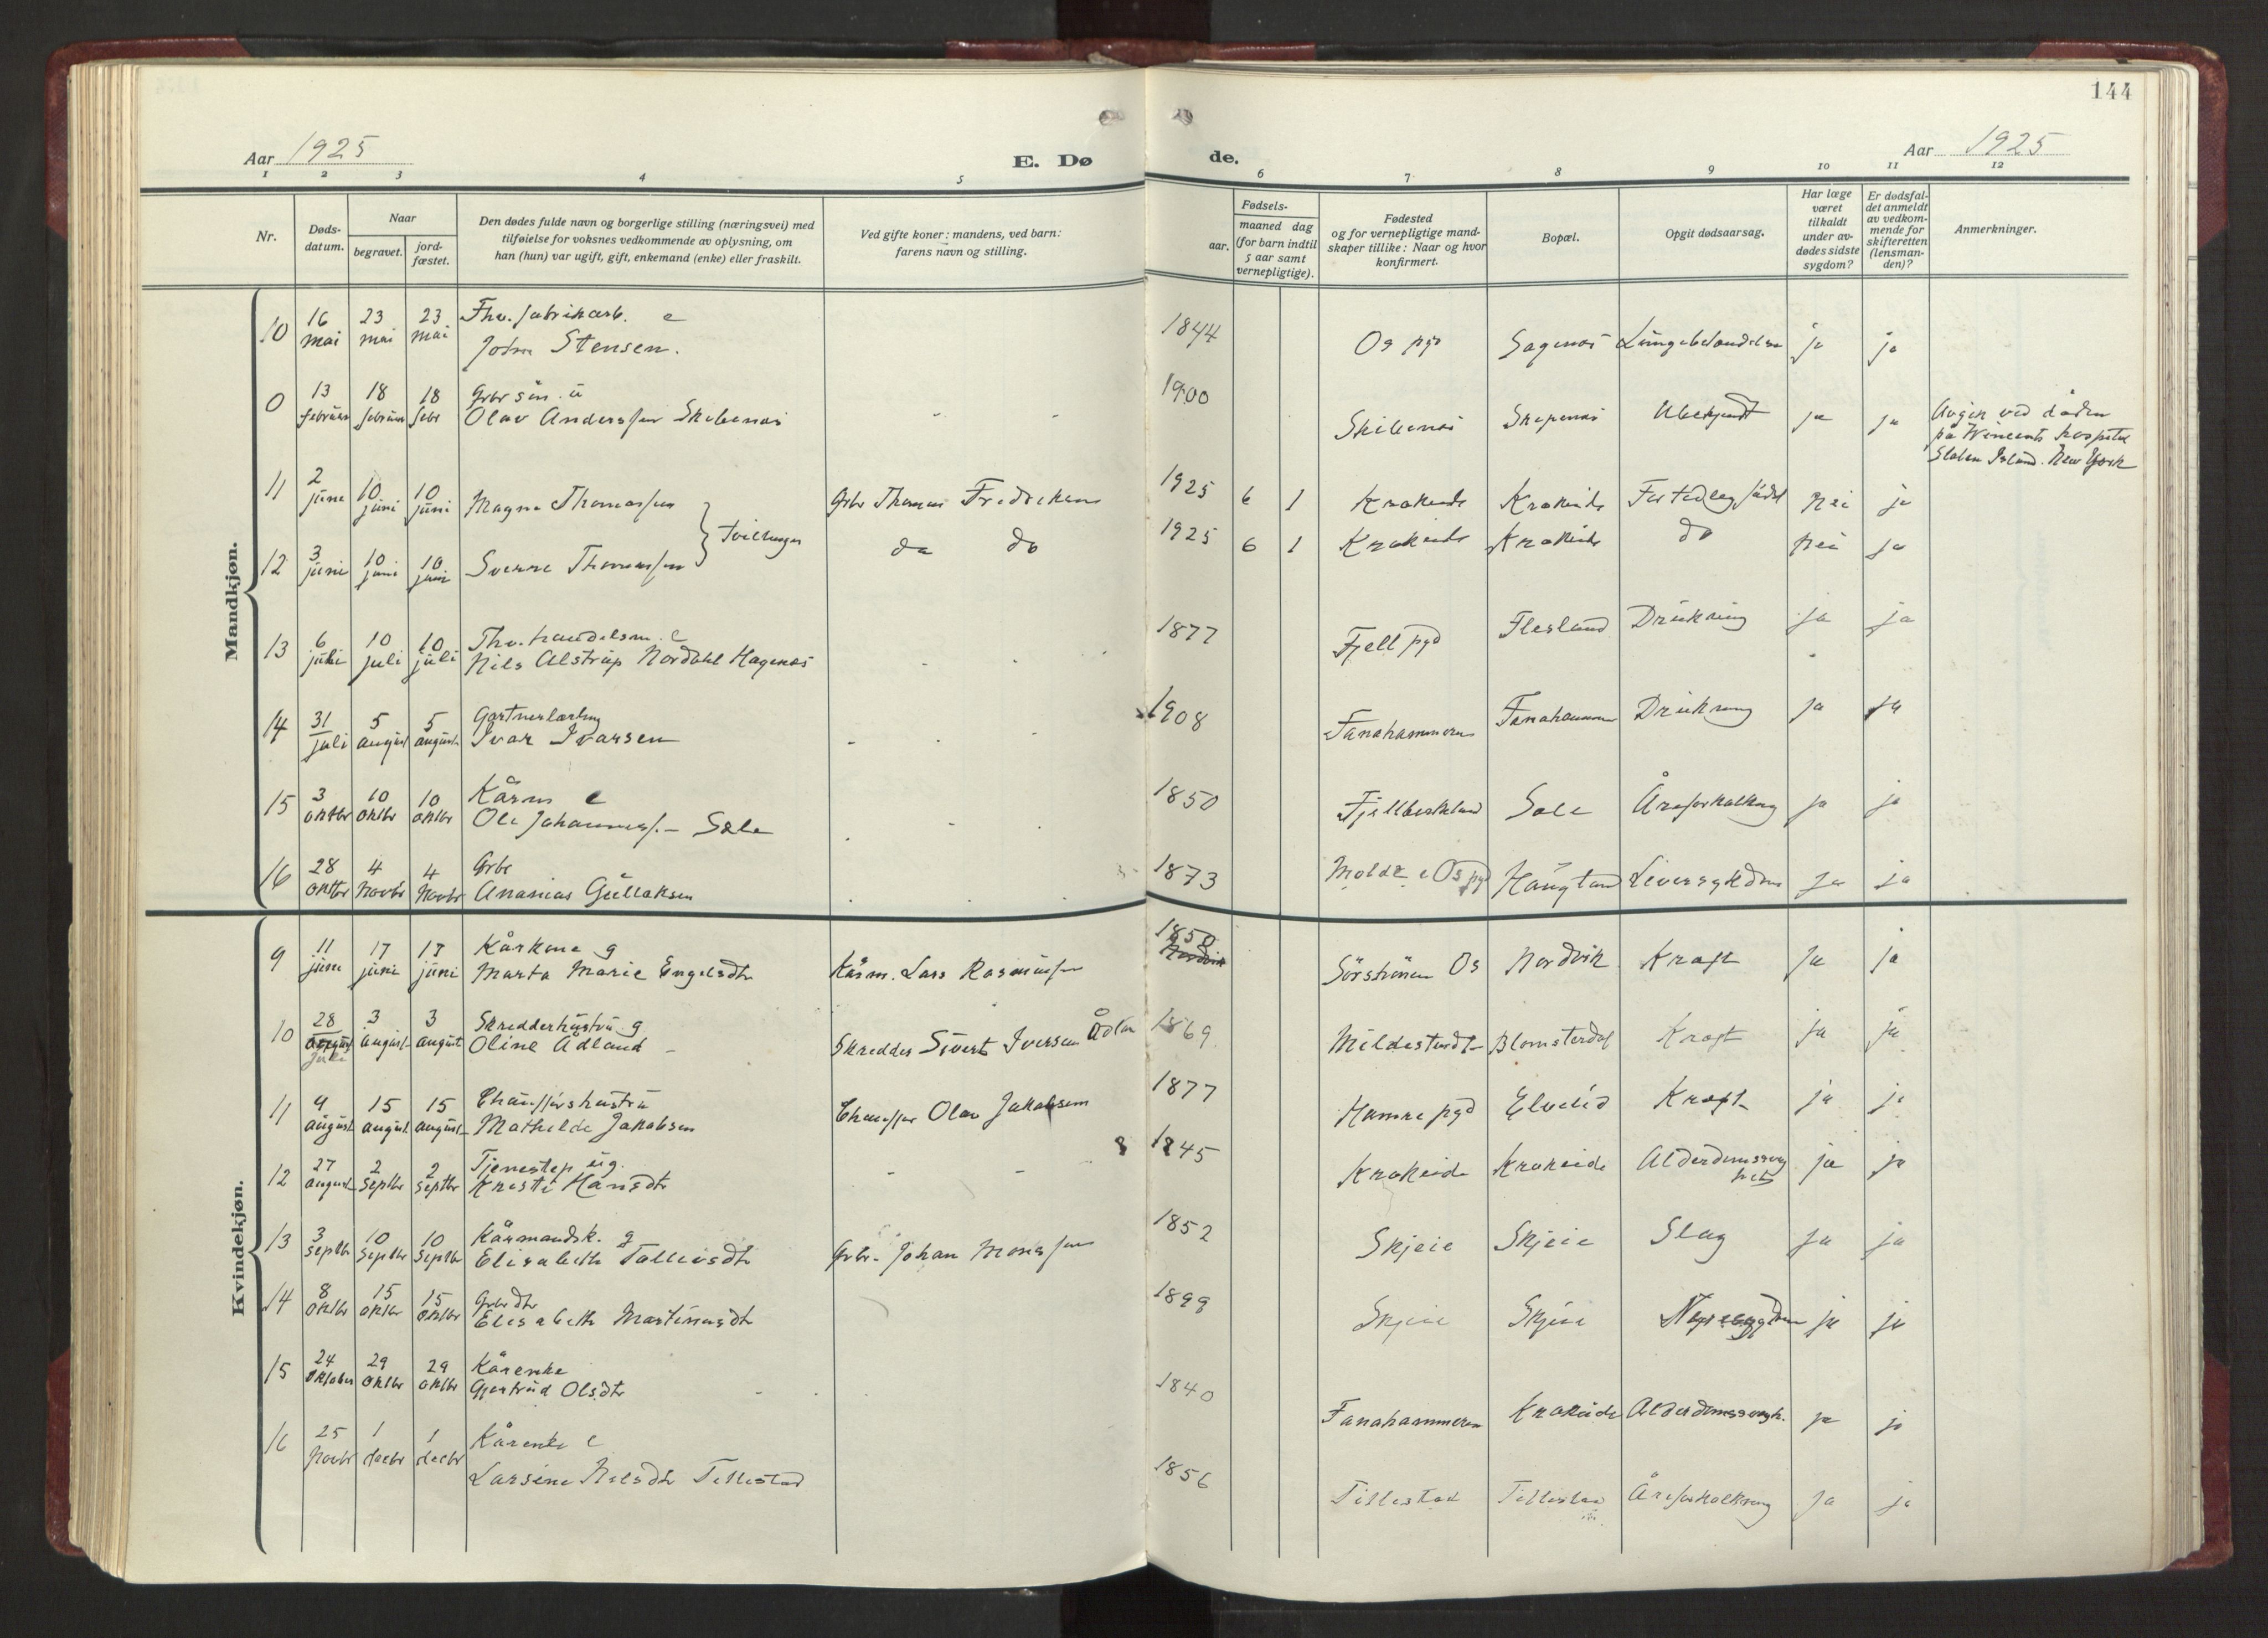 144
Aar 1925
E. Dø
de.
Aar 1925
1 2 3 4 5 6 7 8 9 10 11 12
Nr.
Døds-
datum.
Naar
begravet.
jord-
fæstet.
Den dødes fulde navn og borgerlige stilling (næringsvei) med
tilføielse for voksnes vedkommende av oplysning, om
han (hun) var ugift, gift, enkemand (enke) eller fraskilt.
Ved gifte koner: mandens, ved barn:
farens navn og stilling.
Fødsels-
aar.
maaned dag
(for barn indtil
5 aar samt
vernepligtige).
Fødested
og for vernepligtige mand-
skaper tillike: Naar og hvor
konfirmert.
Bopæl.
Opgit dødsaarsag.
Har læge
været
tilkaldt
under av-
dødes sidste
sygdom?
Er dødsfal-
det anmeldt
av vedkom-
mende for
skifteretten
(lensman-
den)?
Anmerkninger.
Mandkjøn.
10 16 mai 23 mai 23 mai Fhv. fabrikarb. e
Stensen. 1844 Os pgd Sagenes ja ja
0 13 februar 18 februar 18 febr Grbr søn. u
Olav Anderssen Skibenes - - 1900 Skibenes Skepenes Ubekjendt ja ja Avgik ved døden
på Wincents hospital
Staten Island. New York
11 2 june 10 juni 10 juni Magne Thomassen Grbr Thomas Fredriksen 1925 6 1 Krokeide Krokeide For tidleg født nei ja
Tvillinger
12 3 juni 10 juni 10 juni Sverre Thomassen do do 1925 6 1 Krokeide Krokeide do nei ja
13 6 juli 10 juli 10 juli Fhv. handelsm. e
Nils Alstrup Nordahl Hagenes - - 1877 Fjell pgd Flesland Drukning ja ja
14 31 juli 5 august 5 august Gartnerlærling
Ivar Ivarsen - - - 1908 Fanahammeren Fanahammer Drukning ja ja
15 3 oktbr 10 oktbr 10 oktbr Kårm e
Ole Johanness. - Søle 1850 Søle Åreforkalkning ja ja
16 28 oktbr 4 Novbr 4 Novbr Grbr
Ananias Gullaksen 1873 Molde i Os pgd Haugland Leversykdom ja ja
Kvindekjøn.
9 11 june 17 juni 17 juni Kårkone g
Marta Marie Engelsdtr Kårm. Lars Rasmussen 1850 Nordvik Os Nordvik Kræft ja ja
10 28 august juli 3 august 3 august Skredderhustru g
Oline Ådland - Skredder Sivert Iversen Ådlan 1869 Blomsterdal Kræft ja ja
11 9 august 15 august 15 august Chaufførshustru
Mathilde Jakobsen Chauffør Olav Jakobsen 1877 Hamre pgd Kræft ja ja
12 27 august 2 septbr 2 septbr Tjenestep ug.
Kristi Hansdtr - - 8 1845 Krokeide Krokeide Alderdomssvag
het ja ja
13 3 septbr 10 septbr 10 septbr Kårmandsk. g
Elisabeth Tolleivsdtr Grbr. Johan Monssen 1852 Skjeie Skjeie Slag ja ja
14 8 oktbr 15 oktbr 15 oktbr Grbrdtr
Elisabeth Martinusdtr 1899 Skjeie Skjeie ja ja
15 24 oktober 29 oktbr 29 oktbr Kårenke
Gjertrud Olsdtr - 1840 Fanahammeren Krokeide Alderdomssvagh. ja ja
16 25 Novbr 1 decbr 1 decbr Kårenke e
Larsine Nelsdtr Tillestad 1856 Tillestad Tillestad Åreforkalkning ja ja